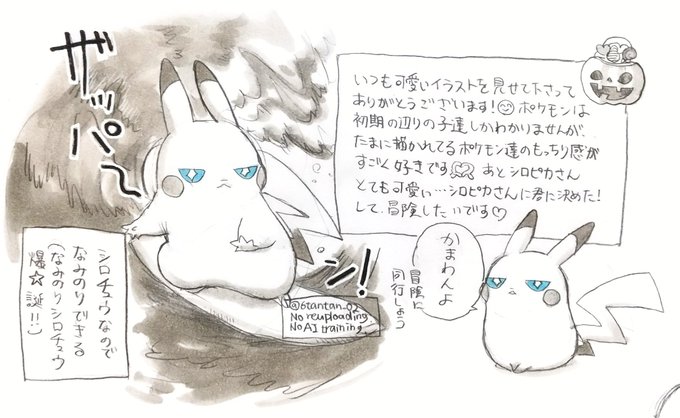 ザッパ〜
ン!
いつも可愛いイラストを見せて下さって
ありがとうございます!ポケモンは
初期の辺りの子達しかわかりませんが、
たまに描かれてるポケモン達のもっちり感が
すごく好きです あとシロピカさん
とても可愛い…シロピカさんに君に決めた!
して、冒険したいです♡
かまわんよ
冒険に
同行しよう
シロチュウなので
なみのりできる
(なみのりシロチュウ
爆☆誕!!:)
@6tantan_02
No reuploading
No AI training